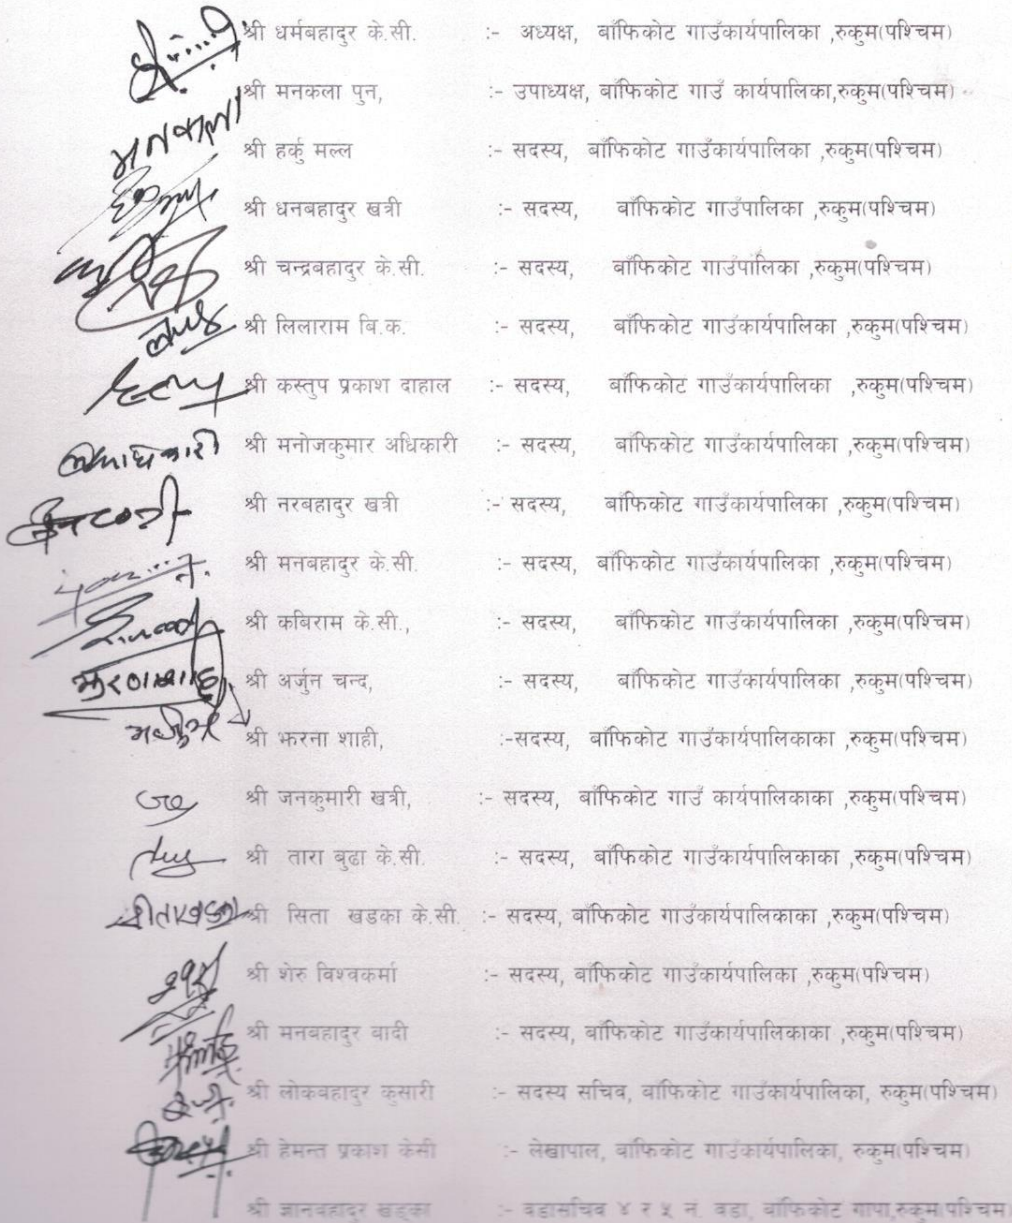 श्री धर्मबहादुर के.सी. :- अध्यक्ष, बाँफिकोट गाउँकार्यपालिका ,रुकुम(पश्चिम)
श्री मनकला पुन, :- उपाध्यक्ष, बाँफिकोट गाउँ कार्यपालिका,रुकुम(पश्चिम)
मनकला
श्री हर्कु मल्ल :- सदस्य, बाँफिकोट गाउँकार्यपालिका ,रुकुम(पश्चिम)
श्री धनबहादुर खत्री :- सदस्य, बाँफिकोट गाउँपालिका ,रुकुम(पश्चिम)
श्री चन्द्रबहादुर के.सी. :- सदस्य, बाँफिकोट गाउँपालिका ,रुकुम(पश्चिम)
श्री लिलाराम बि.क. :- सदस्य, बाँफिकोट गाउँकार्यपालिका ,रुकुम(पश्चिम)
श्री कस्तुप प्रकाश दाहाल :- सदस्य, बाँफिकोट गाउँकार्यपालिका ,रुकुम(पश्चिम)
श्री मनोजकुमार अधिकारी :- सदस्य, बाँफिकोट गाउँकार्यपालिका ,रुकुम(पश्चिम)
श्री नरबहादुर खत्री :- सदस्य, बाँफिकोट गाउँकार्यपालिका ,रुकुम(पश्चिम)
श्री मनबहादुर के.सी. :- सदस्य, बाँफिकोट गाउँकार्यपालिका ,रुकुम(पश्चिम)
श्री कबिराम के.सी., :- सदस्य, बाँफिकोट गाउँकार्यपालिका ,रुकुम(पश्चिम)
श्री अर्जुन चन्द, :- सदस्य, बाँफिकोट गाउँकार्यपालिका ,रुकुम(पश्चिम)
श्री झरना शाही, :-सदस्य, बाँफिकोट गाउँकार्यपालिकाका ,रुकुम(पश्चिम)
श्री जनकुमारी खत्री, :- सदस्य, बाँफिकोट गाउँ कार्यपालिकाका ,रुकुम(पश्चिम)
श्री तारा बुढा के.सी. :- सदस्य, बाँफिकोट गाउँकार्यपालिकाका ,रुकुम(पश्चिम)
श्री सिता खडका के.सी. :- सदस्य, बाँफिकोट गाउँकार्यपालिकाका ,रुकुम(पश्चिम)
श्री शेरु विश्वकर्मा :- सदस्य, बाँफिकोट गाउँकार्यपालिका ,रुकुम(पश्चिम)
श्री मनबहादुर बादी :- सदस्य, बाँफिकोट गाउँकार्यपालिकाका ,रुकुम(पश्चिम)
श्री लोकबहादुर कुसारी :- सदस्य सचिव, बाँफिकोट गाउँकार्यपालिका, रुकुम(पश्चिम)
श्री हेमन्त प्रकाश केसी :- लेखापाल, बाँफिकोट गाउँकार्यपालिका, रुकुम(पश्चिम)
श्री ज्ञानबहादुर खड्का :- वडासचिव ४ र ५ नं. वडा, बाँफिकोट गापा,रुकुम(पश्चिम)